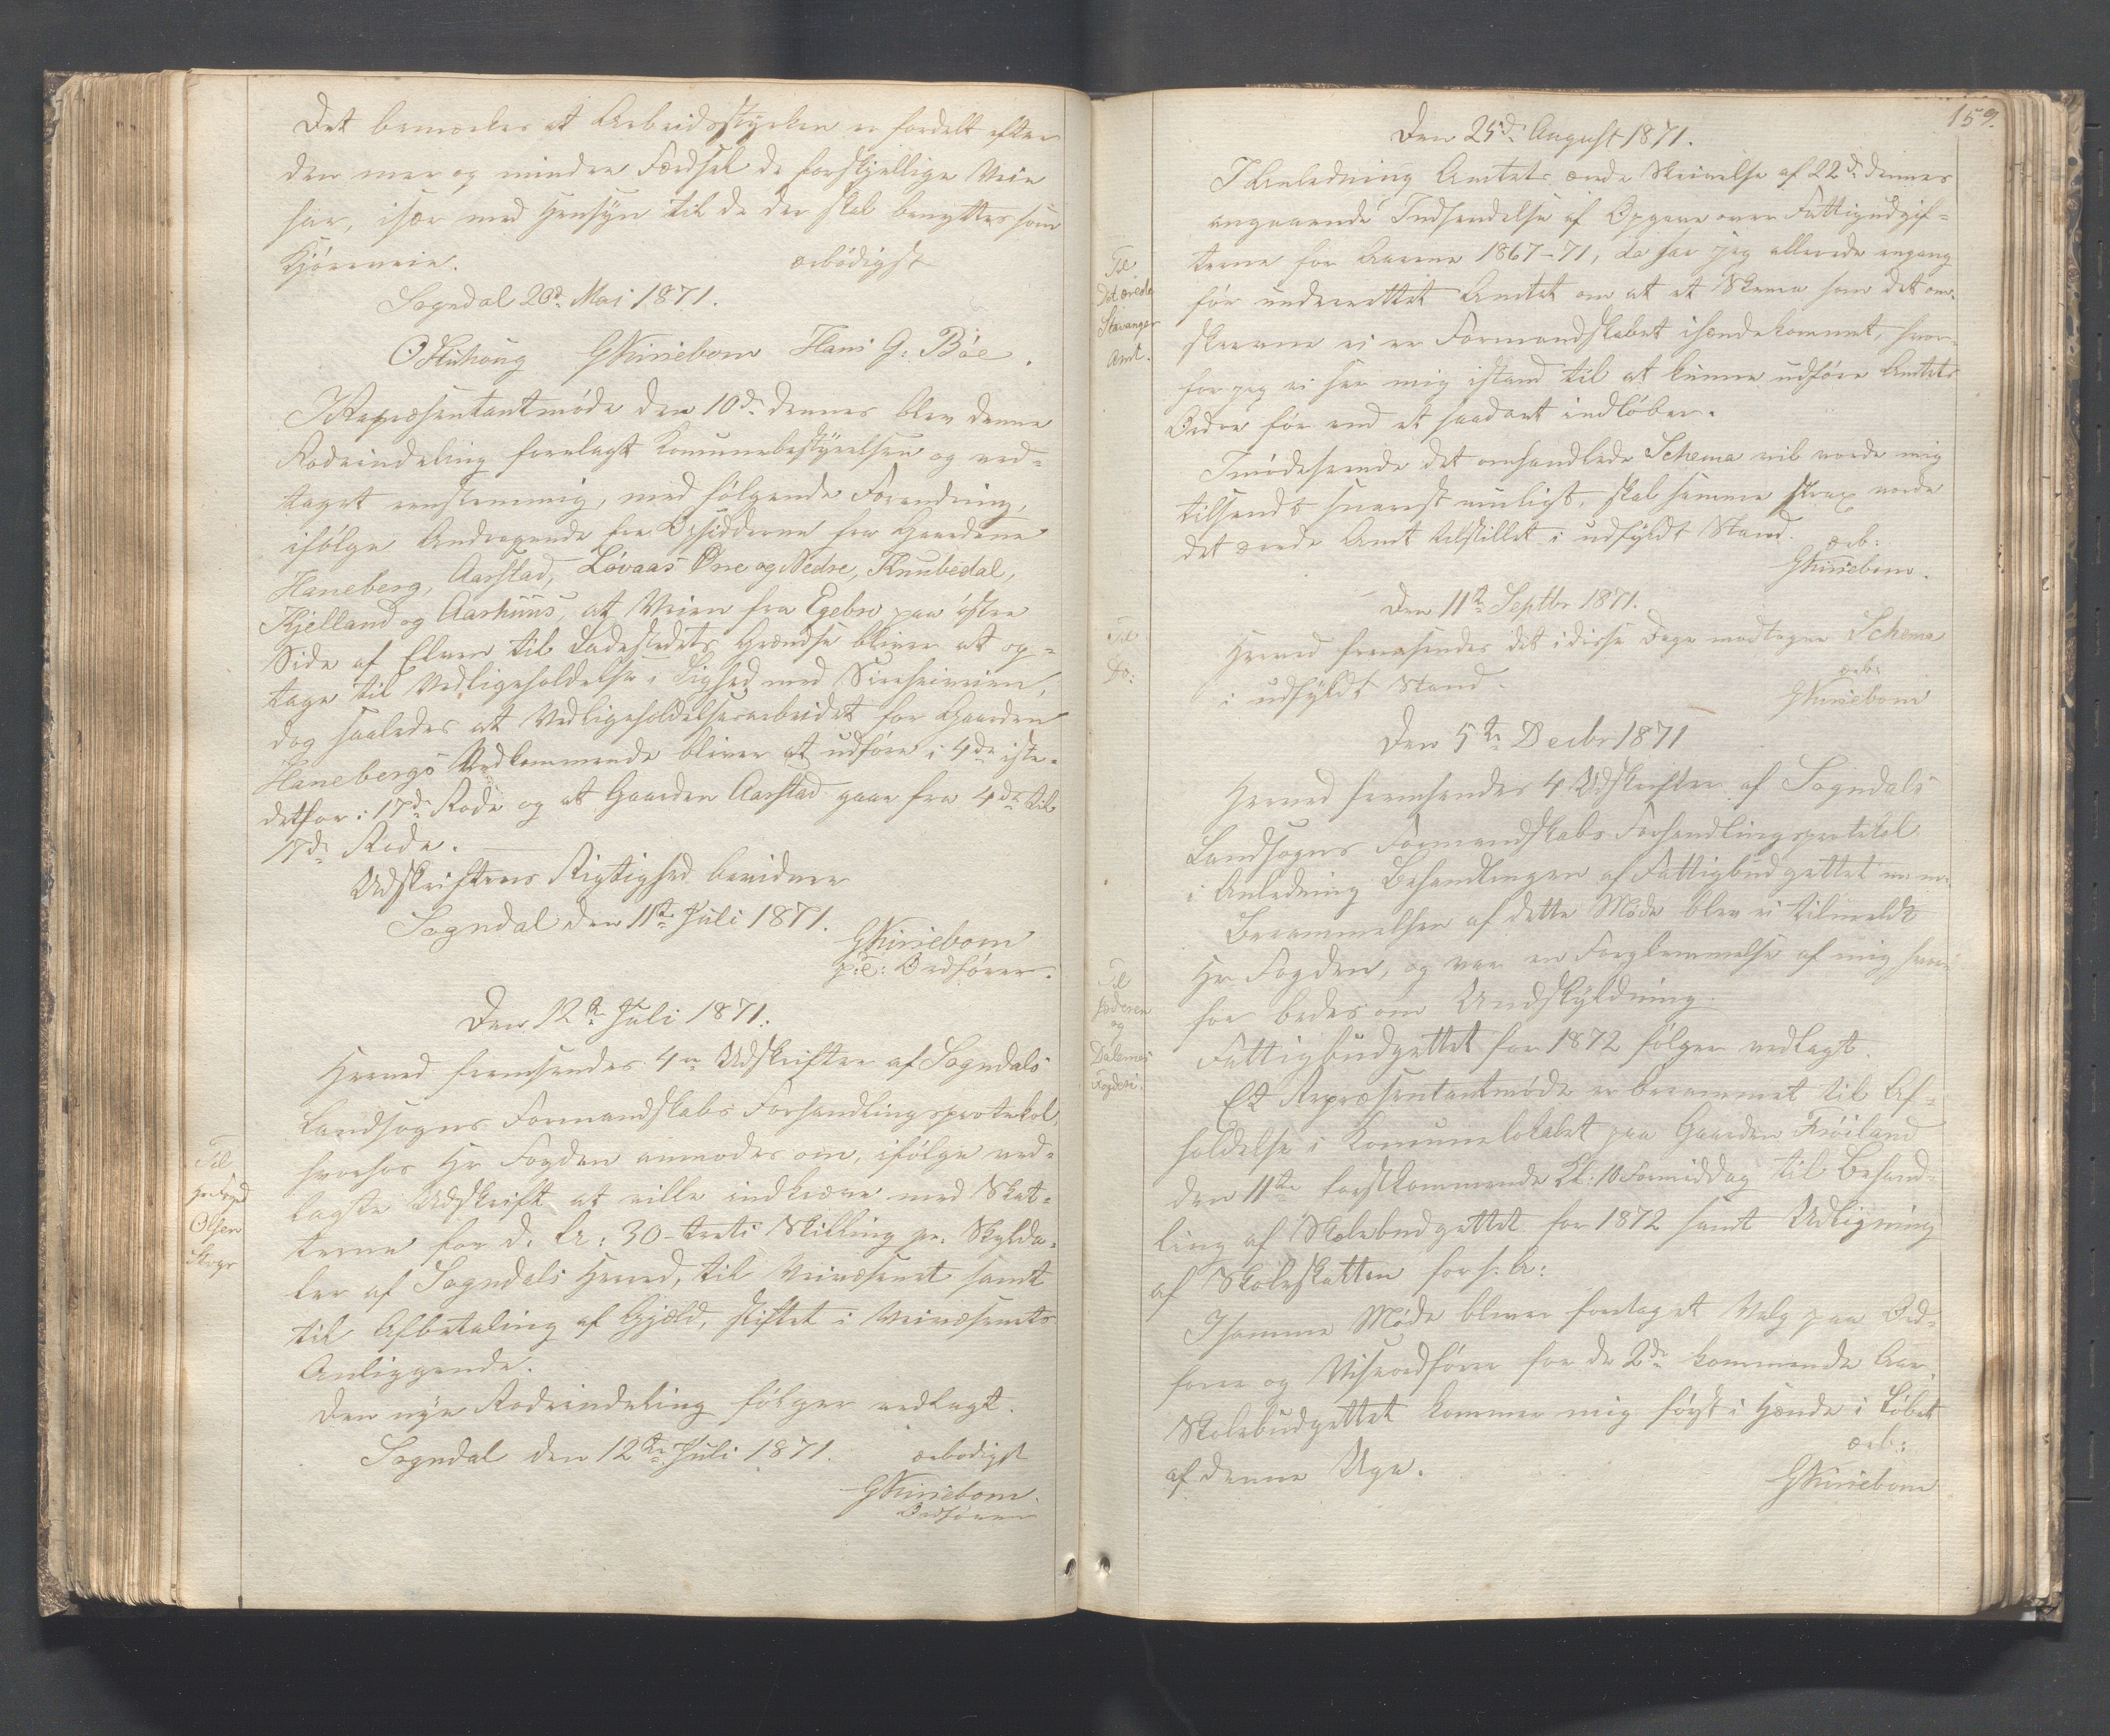 Det bemærkes at Arbeidsstyrken er fordelt efter
den mer og mindre Færdsel de forskjellige Veie
har, især med Hensyn til de der skal benyttes som
Kjøreveie. ærbødigst
Sogndal 20d. Mai 1871.
Hans G: Bøe.
I Repræsentantmøde den 10de dennes blev denne
Rodeinddeling forelagt Kommunebestyrelsen og ved-
taget eenstemmig, med følgende Forandring,
ifølge Andragende fra Opsidderne fra Gaardene
Haneberg, Aarstad, Løvaas Øvre og Nedre, Knubedal,
Kjelland og Aarhuus, at Veien fra Egebro paa østre
Side af Elven til Ladestedets Grændse bliver at op-
tage til Vedligeholdelse i Lighed med
dog saaledes at Vedligeholdelsesarbeidet for Gaarden
Hanebergs Vedkommende bliver at udføre i 4de iste-
detfor i 17de Rode og at Gaarden Aarstad gaar fra 4de til
17de Rode.
Udskriftens Rigtighed bevidner
Sogndal den 11te Juli 1871.
Ordfører.
Den 12te Juli 1871.
Til
Olsen
Herved fremsendes 4re Udskrifter af Sogndals
Landsogns Formandskabs Forhandlingsprotokol,
hvorhos Hr Fogden anmodes om, ifølge ved-
lagte Udskrift at ville indkræve med Skat-
terne for d. Aa: 30-treti Skilling pr. Skylda-
ler af Sogndals Herred, til Veivæsenet samt
til Afbetaling af Gjæld, stiftet i Veivæsenets
Anliggende.
Den nye Rodeinddeling følger vedlagt.
Sogndal den 12te Juli 1871. ærbødigst
Ordfører
159.
Den 25d. August 1871.
Til
Det ærede
Stavanger
Amt.
I Anledning Amtets ærede Skrivelse af 22d. dennes
angaaende Indsendelse af Opgave over Fattigudgif-
terne for Aarene 1867-71, da har jeg allerede engang
før underrettet Amtet om at et Skema som det om-
skrevne ei er Formandskabet ihændekommet, hvor-
for jeg ei ser mig istand til at kunne udføre Amtets
Ordre før end et saadant indløber.
Imødeseende det omhandlede Schema vil vorde mig
tilsendt snarest muligt, skal samme strax vorde
det ærede Amt tilstillet i udfyldt Stand.
ærb:
Den 11te Septbr 1871.
Til
Do:
Herved fremsendes det i disse Dage modtagne Schema
i udfyldt Stand.
ærb:
Den 5te Decbr 1871
Til
Jæderen
og
Dalernes
Fogderi.
Herved fremsendes 4 Udskrifter af Sogndals
Landsogns Formandskabs Forhandlingsprotokol
i Anledning Behandlingen af Fattigbudgettet m.m.
Berammelsen af dette Møde blev ei tilmeldt
Hr Fogden, og var en Forglemmelse af mig hvor-
for bedes om Undskyldning.
Fattigbudgettet for 1872 følger vedlagt.
Et Repræsentantmøde er berammet til Af-
holdelse i Komunelokalet paa Gaarden Frøiland
den 11te førstkommende Kl: 10 Formiddag til Behand-
ling af Skolebudgettet for 1872 samt Udligning
af Skoleskatten for s. Aa:
I samme Møde bliver foretaget Valg paa Ord-
fører og Viseordfører for de 2de kommende Aar.
Skolebudgettet kommer mig først i Hænde i Løbet
af denne Uge.
ærb: